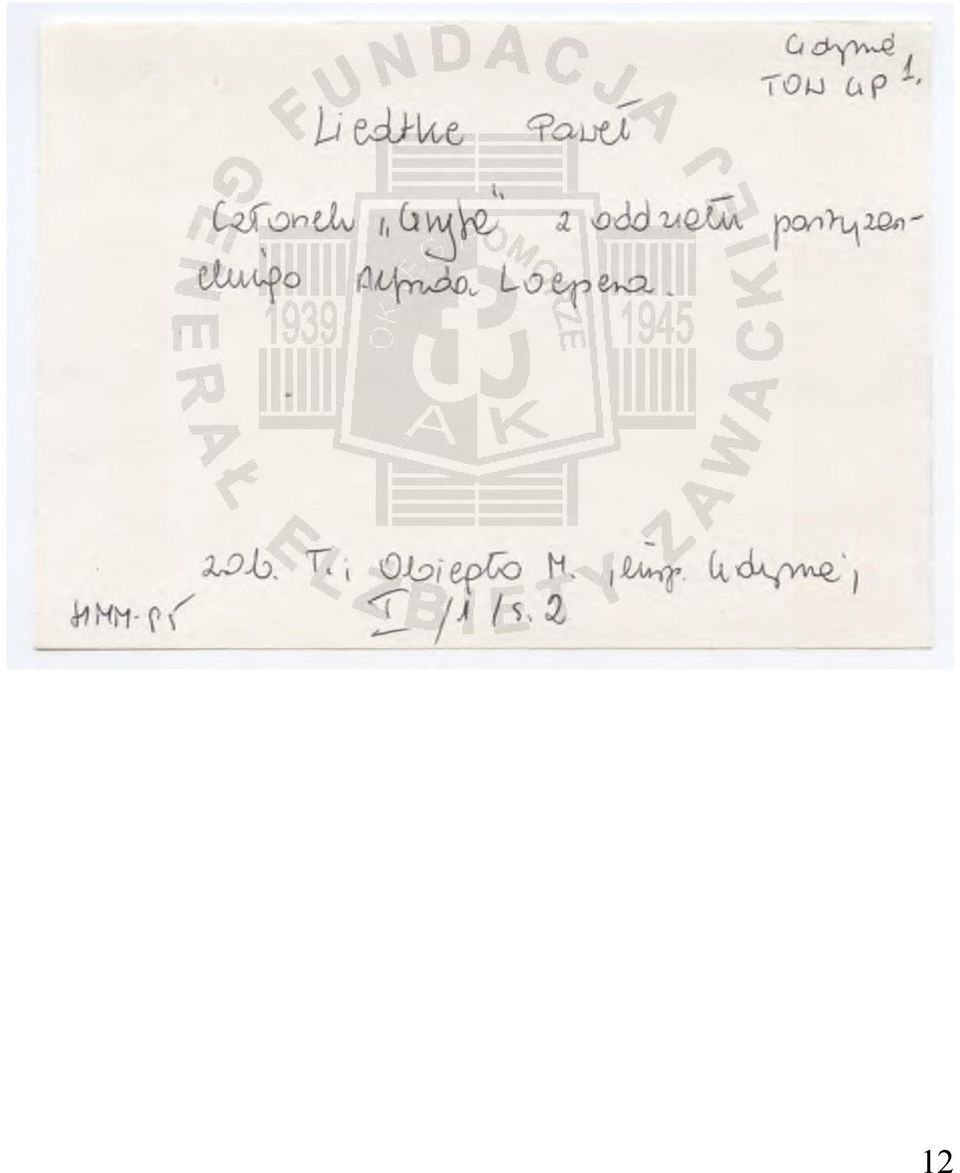 Gdynia
TOW GP 1.
Liedtke Paweł
Członek „Gryfa" z oddziału partyzan-
ckiego Alfreda Loepera.
zob. T.; Obiegło M., insp. Gdynia;
I /1 /s. 2
HMM-PŚ
FUNDACJA
GENERAŁ ELŻBIETY ZAWACKIEJ
OKRĘG POMORZE
1939 1945
AK
12